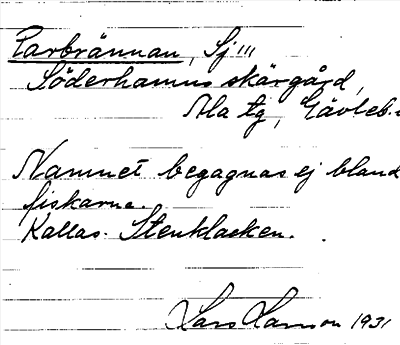 Parbrännan, Sj'''
Söderhamns skärgård,
Ala tg, Gävleb.
Namnet begagnas ej bland
fiskarne.
Kallas. Stenklacken.
Lars Larsson 1931